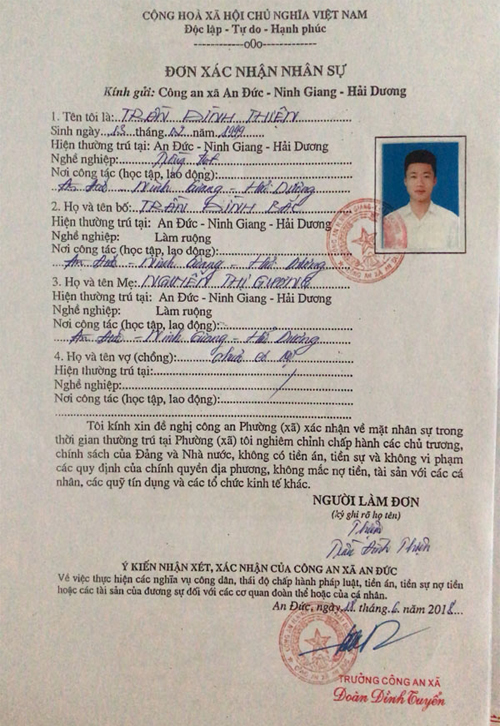 CỘNG HOÀ XÃ HỘI CHỦ NGHĨA VIỆT NAM
Độc lập - Tự do - Hạnh phúc
------------o0o------------
ĐƠN XÁC NHẬN NHÂN SỰ
Kính gửi: Công an xã An Đức - Ninh Giang - Hải Dương
1. Tên tôi là: TRẦN ĐÌNH THIÊN
Sinh ngày 13 tháng 02 năm 1999
Hiện thường trú tại: An Đức - Ninh Giang - Hải Dương
Nghề nghiệp:
Nơi công tác (học tập, lao động)
An Đức - Ninh Giang - Hải Dương
2. Họ và tên bố: TRẦN ĐÌNH BẮC
Hiện thường trú tại: An Đức - Ninh Giang - Hải Dương
Nghề nghiệp: Làm ruộng
Nơi công tác (học tập, lao động)
An Đức - Ninh Giang - Hải Dương
3. Họ và tên Mẹ: NGUYỄN THỊ GƯƠNG
Hiện thường trú tại: An Đức - Ninh Giang - Hải Dương
Nghề nghiệp: Làm ruộng
Nơi công tác (học tập, lao động)
An Đức - Ninh Giang - Hải Dương
4. Họ và tên vợ (chồng): chưa có vợ
Hiện thường trú tại:
Nghề nghiệp:
Nơi công tác (học tập, lao động)
Tôi kính xin đề nghị công an Phường (xã) xác nhận về mặt nhân sự trong
thời gian thường trú tại Phường (xã) tôi nghiêm chỉnh chấp hành các chủ trương,
chính sách của Đảng và Nhà nước, không có tiền án, tiền sự và không vi phạm
các quy định của chính quyền địa phương, không mắc nợ tiền, tài sản với các cá
nhân, các quỹ tín dụng và các tổ chức kinh tế khác.
NGƯỜI LÀM ĐƠN
(ký ghi rõ họ tên)
Thiên
Trần Đình Thiên
Ý KIẾN NHẬN XÉT, XÁC NHẬN CỦA CÔNG AN XÃ AN ĐỨC
Về việc thực hiện các nghĩa vụ công dân, thái độ chấp hành pháp luật, tiền án, tiền sự nợ tiền
hoặc các tài sản của đương sự đối với các cơ quan đoàn thể hoặc của cá nhân.
An Đức, ngày 18 tháng 6 năm 2018
TRƯỞNG CÔNG AN XÃ
Đoàn Đình Tuyển